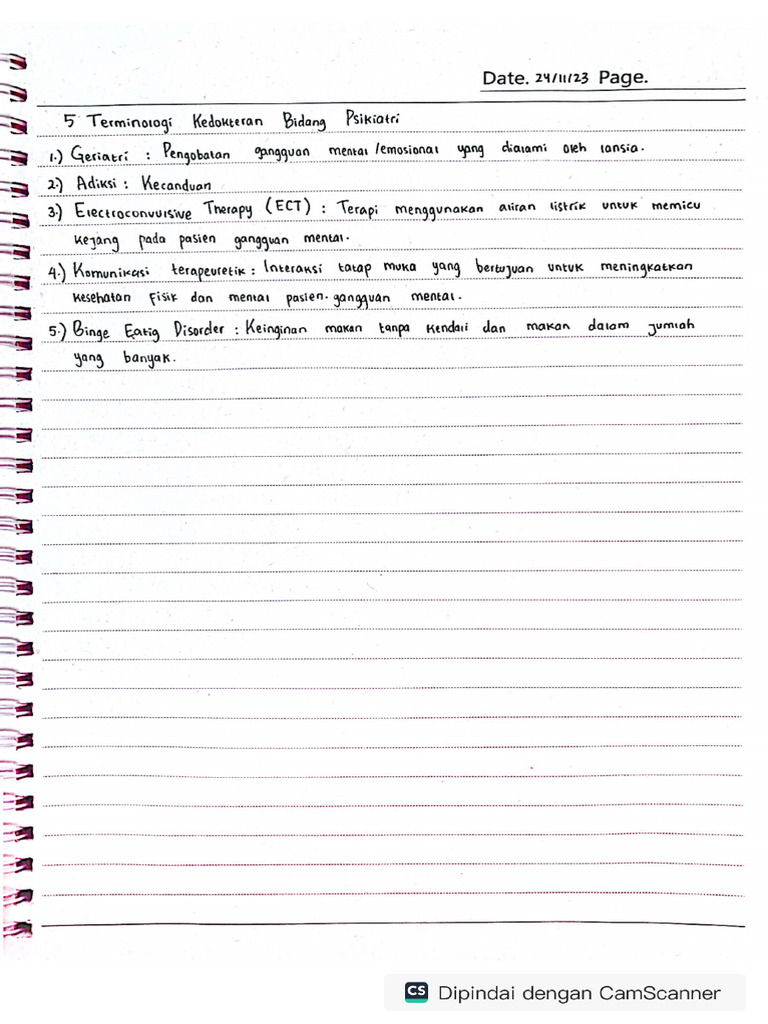 Date. 24/11/23 Page.
5 Terminologi Kedokteran Bidang Psikiatri
1.) Geriatri : Pengobatan gangguan mental /emosional yang dialami oleh lansia.
2.) Adiksi : Kecanduan
3.) Electroconvulsive Therapy (ECT) : Terapi menggunakan aliran listrik untuk memicu
kejang pada pasien gangguan mental.
4.) Komunikasi terapeuretik : Interaksi tatap muka yang bertujuan untuk meningkatkan
kesehatan fisik dan mental pasien. gangguan mental.
5.) Binge Eatig Disorder : Keinginan makan tanpa kendali dan makan dalam jumlah
yang banyak.
CS Dipindai dengan CamScanner